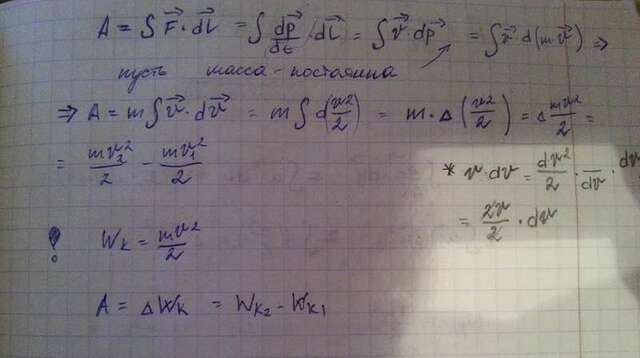 A = ∫F⃗·dl⃗ = ∫dp⃗/dt·dl⃗ = ∫v⃗·dp⃗ = ∫v⃗·d(mv⃗) ⇒
пусть масса - постоянна
⇒ A = m∫v⃗·dv⃗ = m∫d(v²/2) = m·Δ(v²/2) = Δ mv²/2 =
= mv₂²/2 - mv₁²/2
* v·dv = dv²/2·dv · dv
= 2v/2 · dv
! Wк = mv²/2
A = ΔWк = Wк₂ - Wк₁